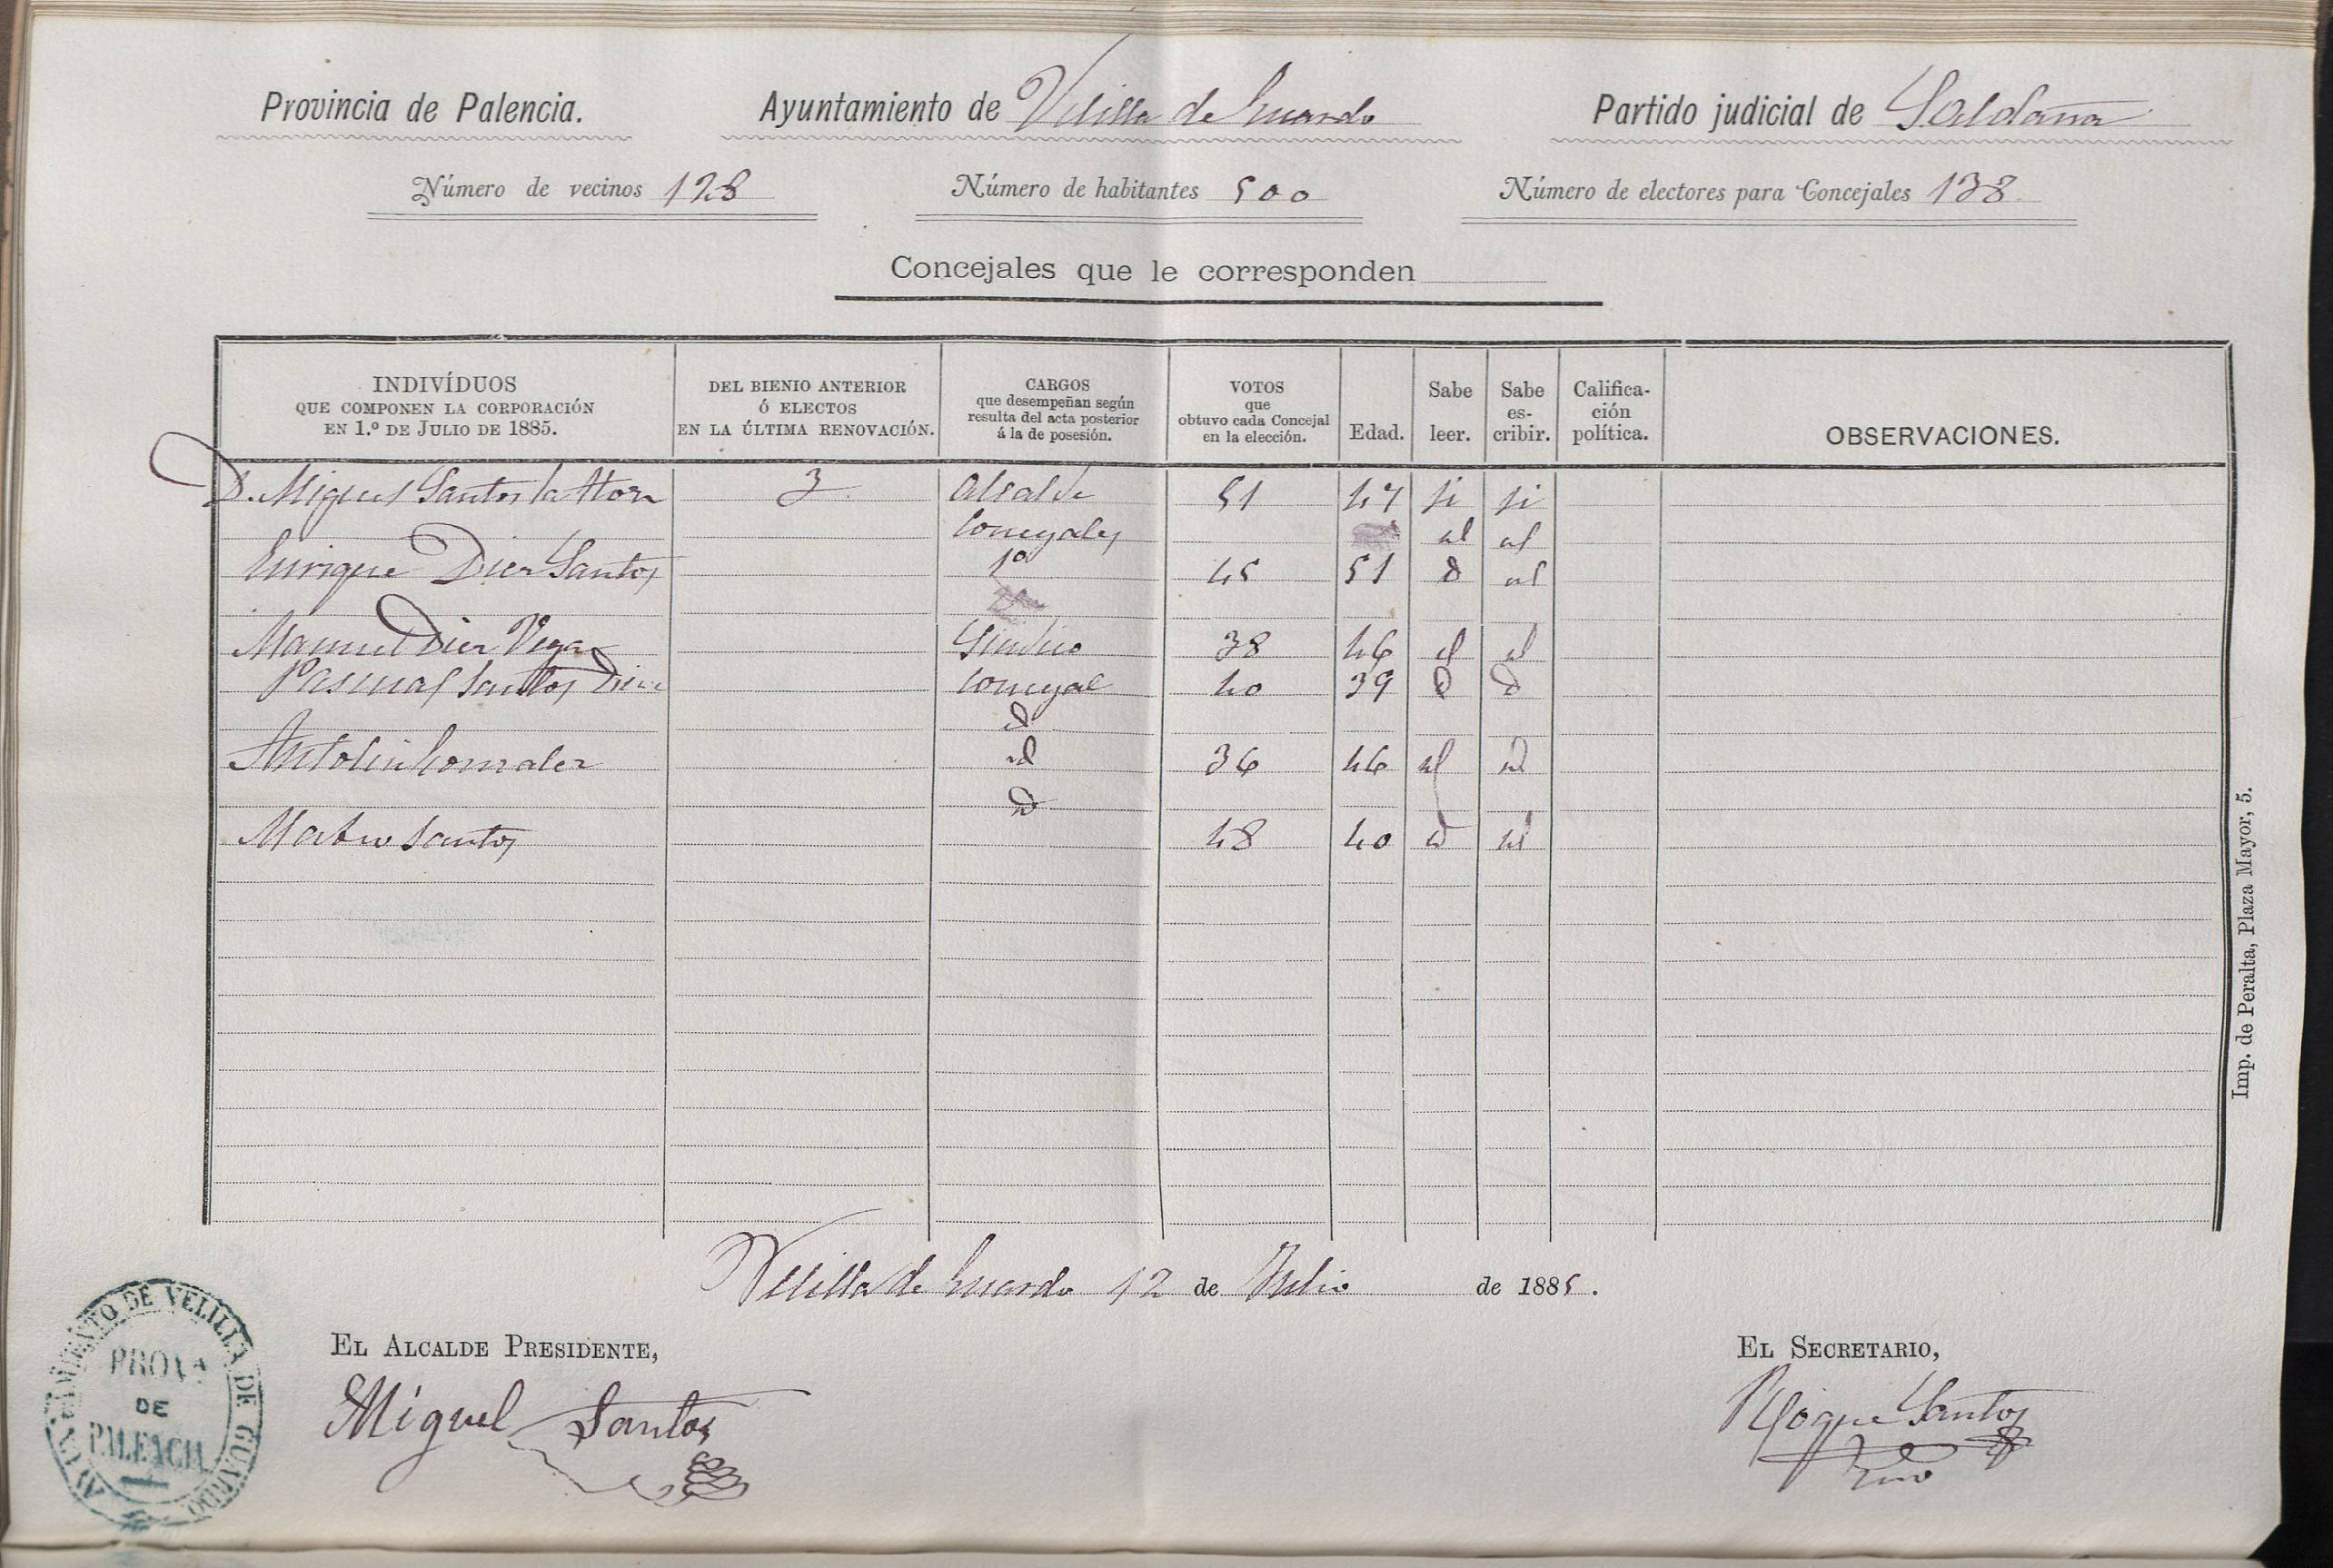 Provincia de Palencia. Ayuntamiento de Velilla de Guardo Partido judicial de Saldaña
Número de vecinos 128 Número de habitantes 500 Número de electores para Concejales 138
Concejales que le corresponden
INDIVÍDUOS QUE COMPONEN LA CORPORACIÓN EN 1.º DE JULIO DE 1885. DEL BIENIO ANTERIOR Ó ELECTOS EN LA ÚLTIMA RENOVACIÓN. CARGOS que desempeñan según resulta del acta posterior á la de posesión. VOTOS que obtuvo cada Concejal en la elección. Edad. Sabe leer. Sabe es-cribir. Califica-ción política. OBSERVACIONES.
D. Miguel Santos la Hora 3 Alcalde 51 47 si si
Concejales id id
Enrique Diez Santos 1º 45 51 id id
Manuel Diez Vega Sindico 38 46 id id
Pascual Santos Diez Concejal 40 39 id id
id
Antolin Gonzalez id 36 46 id id
id
Mateo Santos 48 40 id id
Velilla de Guardo 12 de Julio de 1885.
EL ALCALDE PRESIDENTE, EL SECRETARIO,
Miguel Santos Roque Santos
AYUNTAMIENTO DE VELILLA DE GUARDO
PROVA
DE
PALENCIA
Imp. de Peralta, Plaza Mayor, 5.